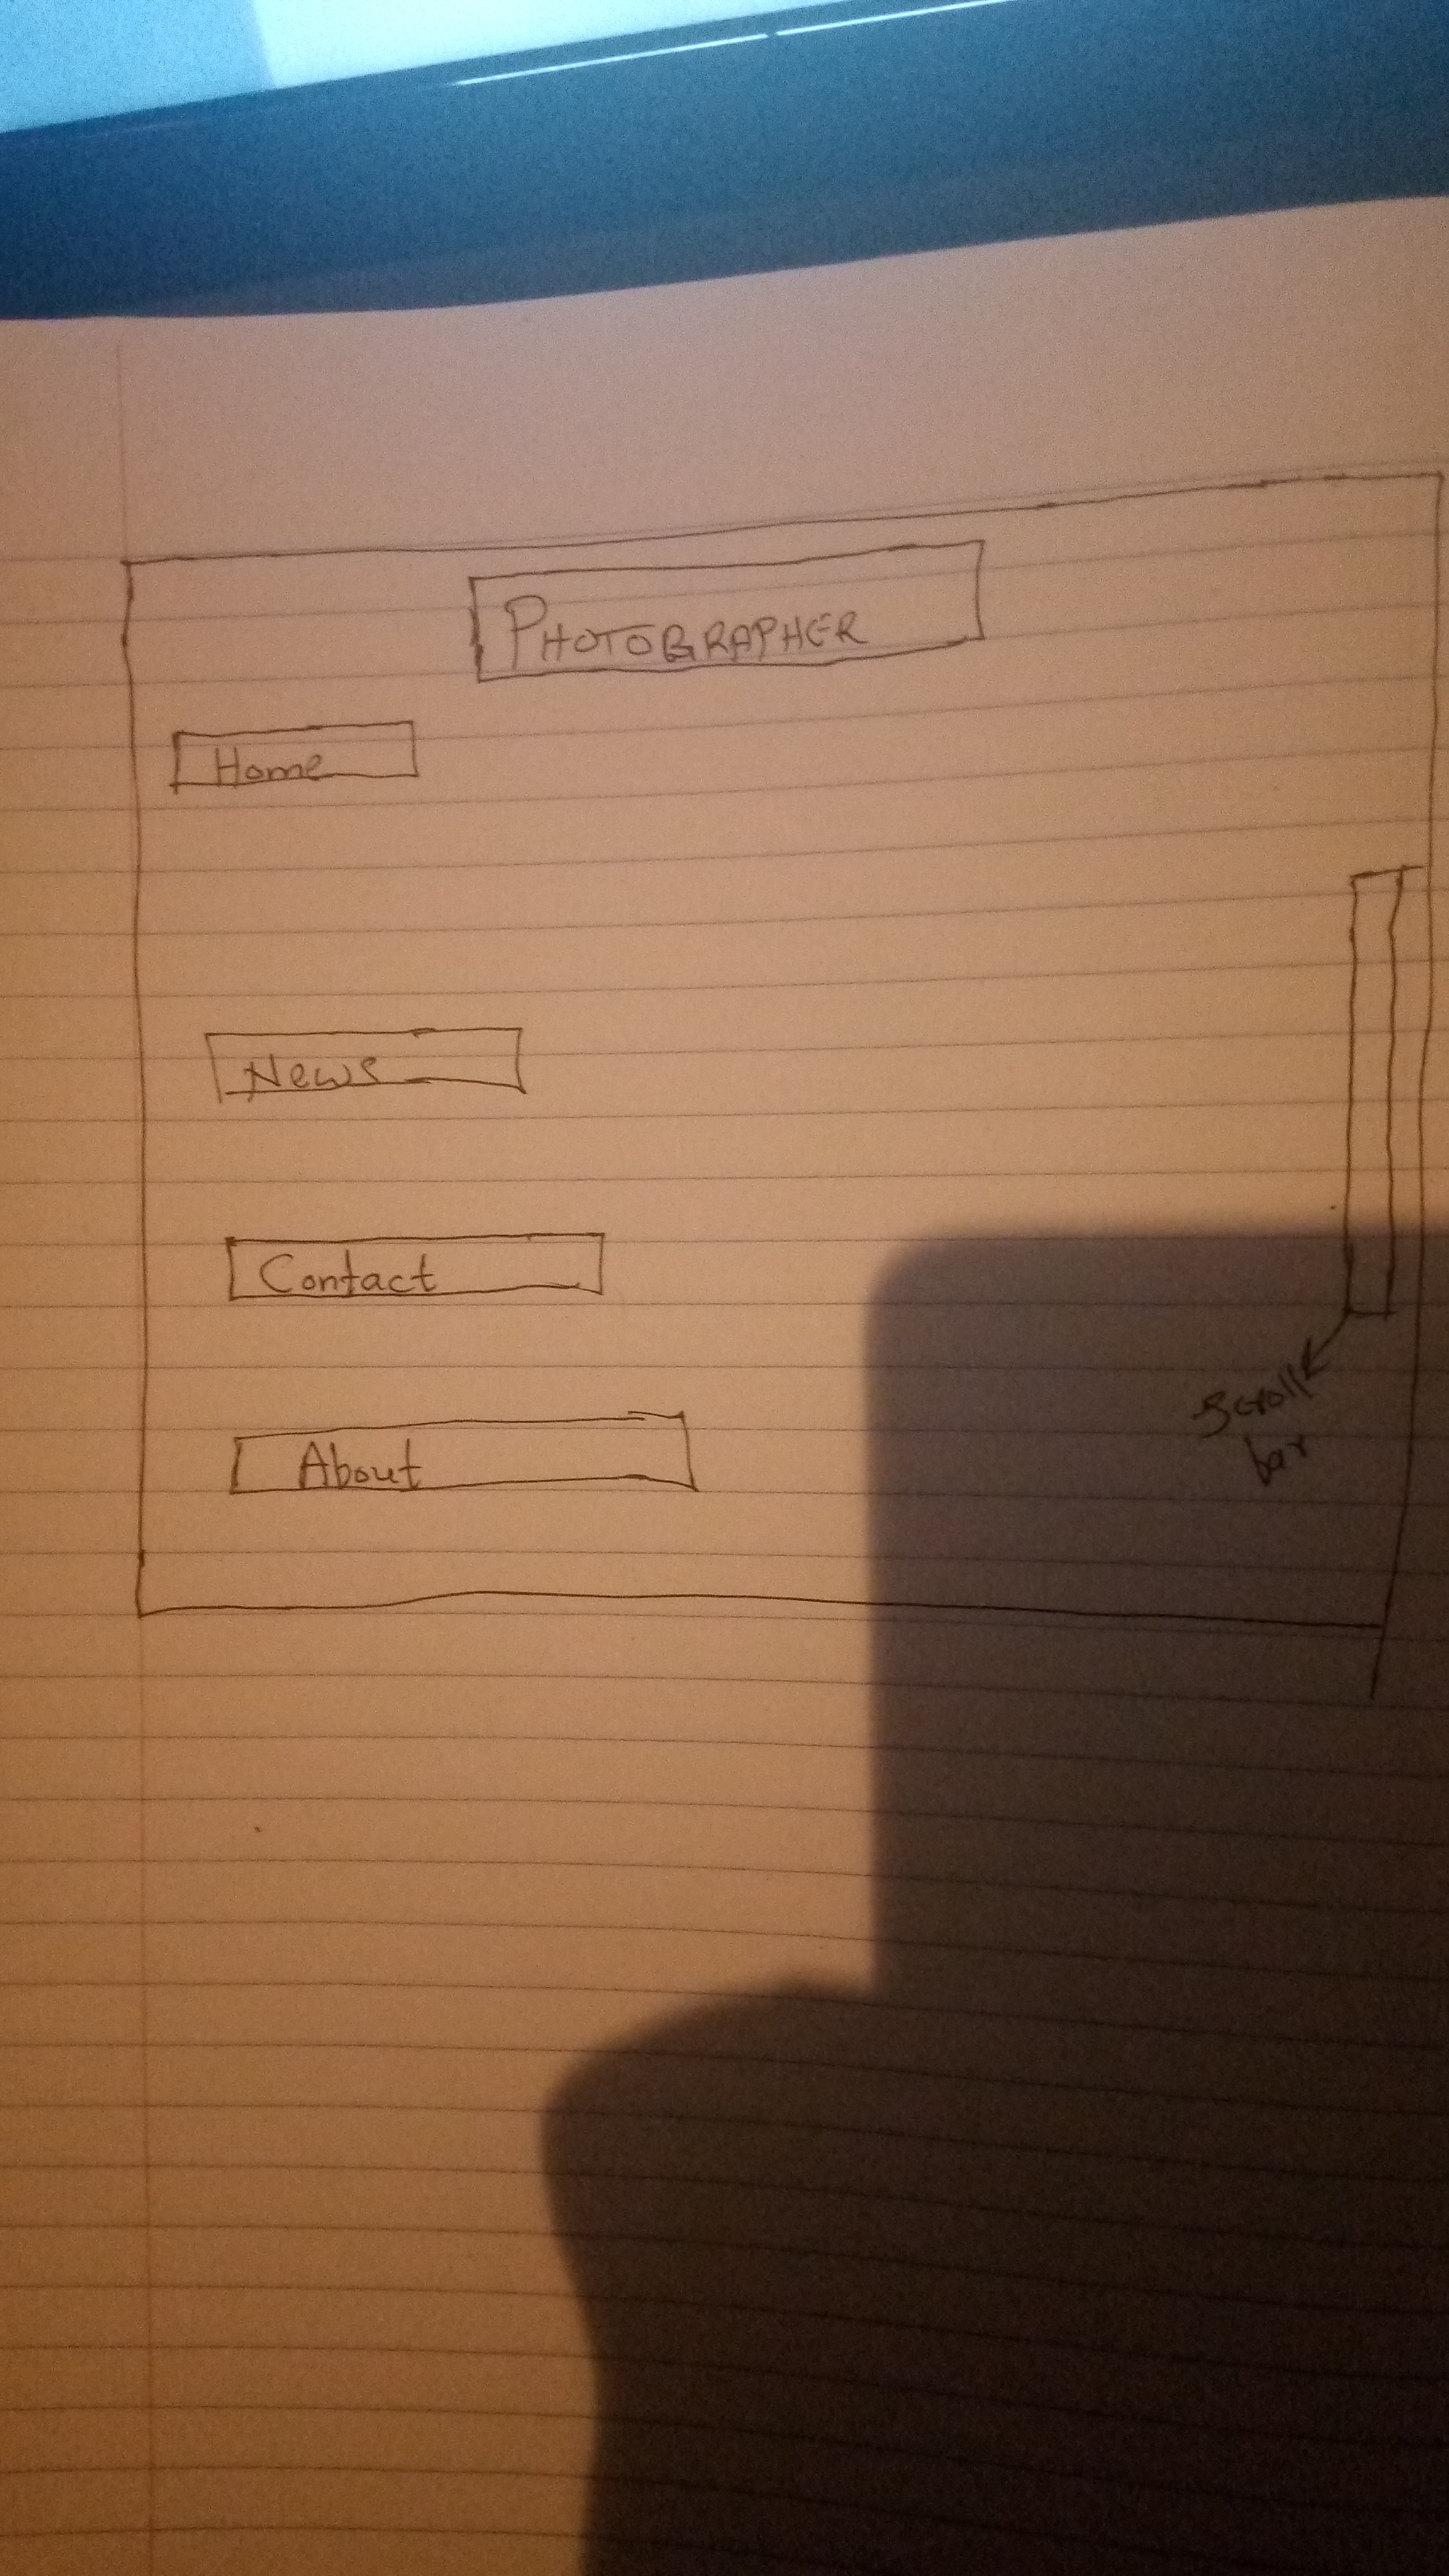 PHOTOGRAPHER
Home
News
Contact
About
Scroll
bar